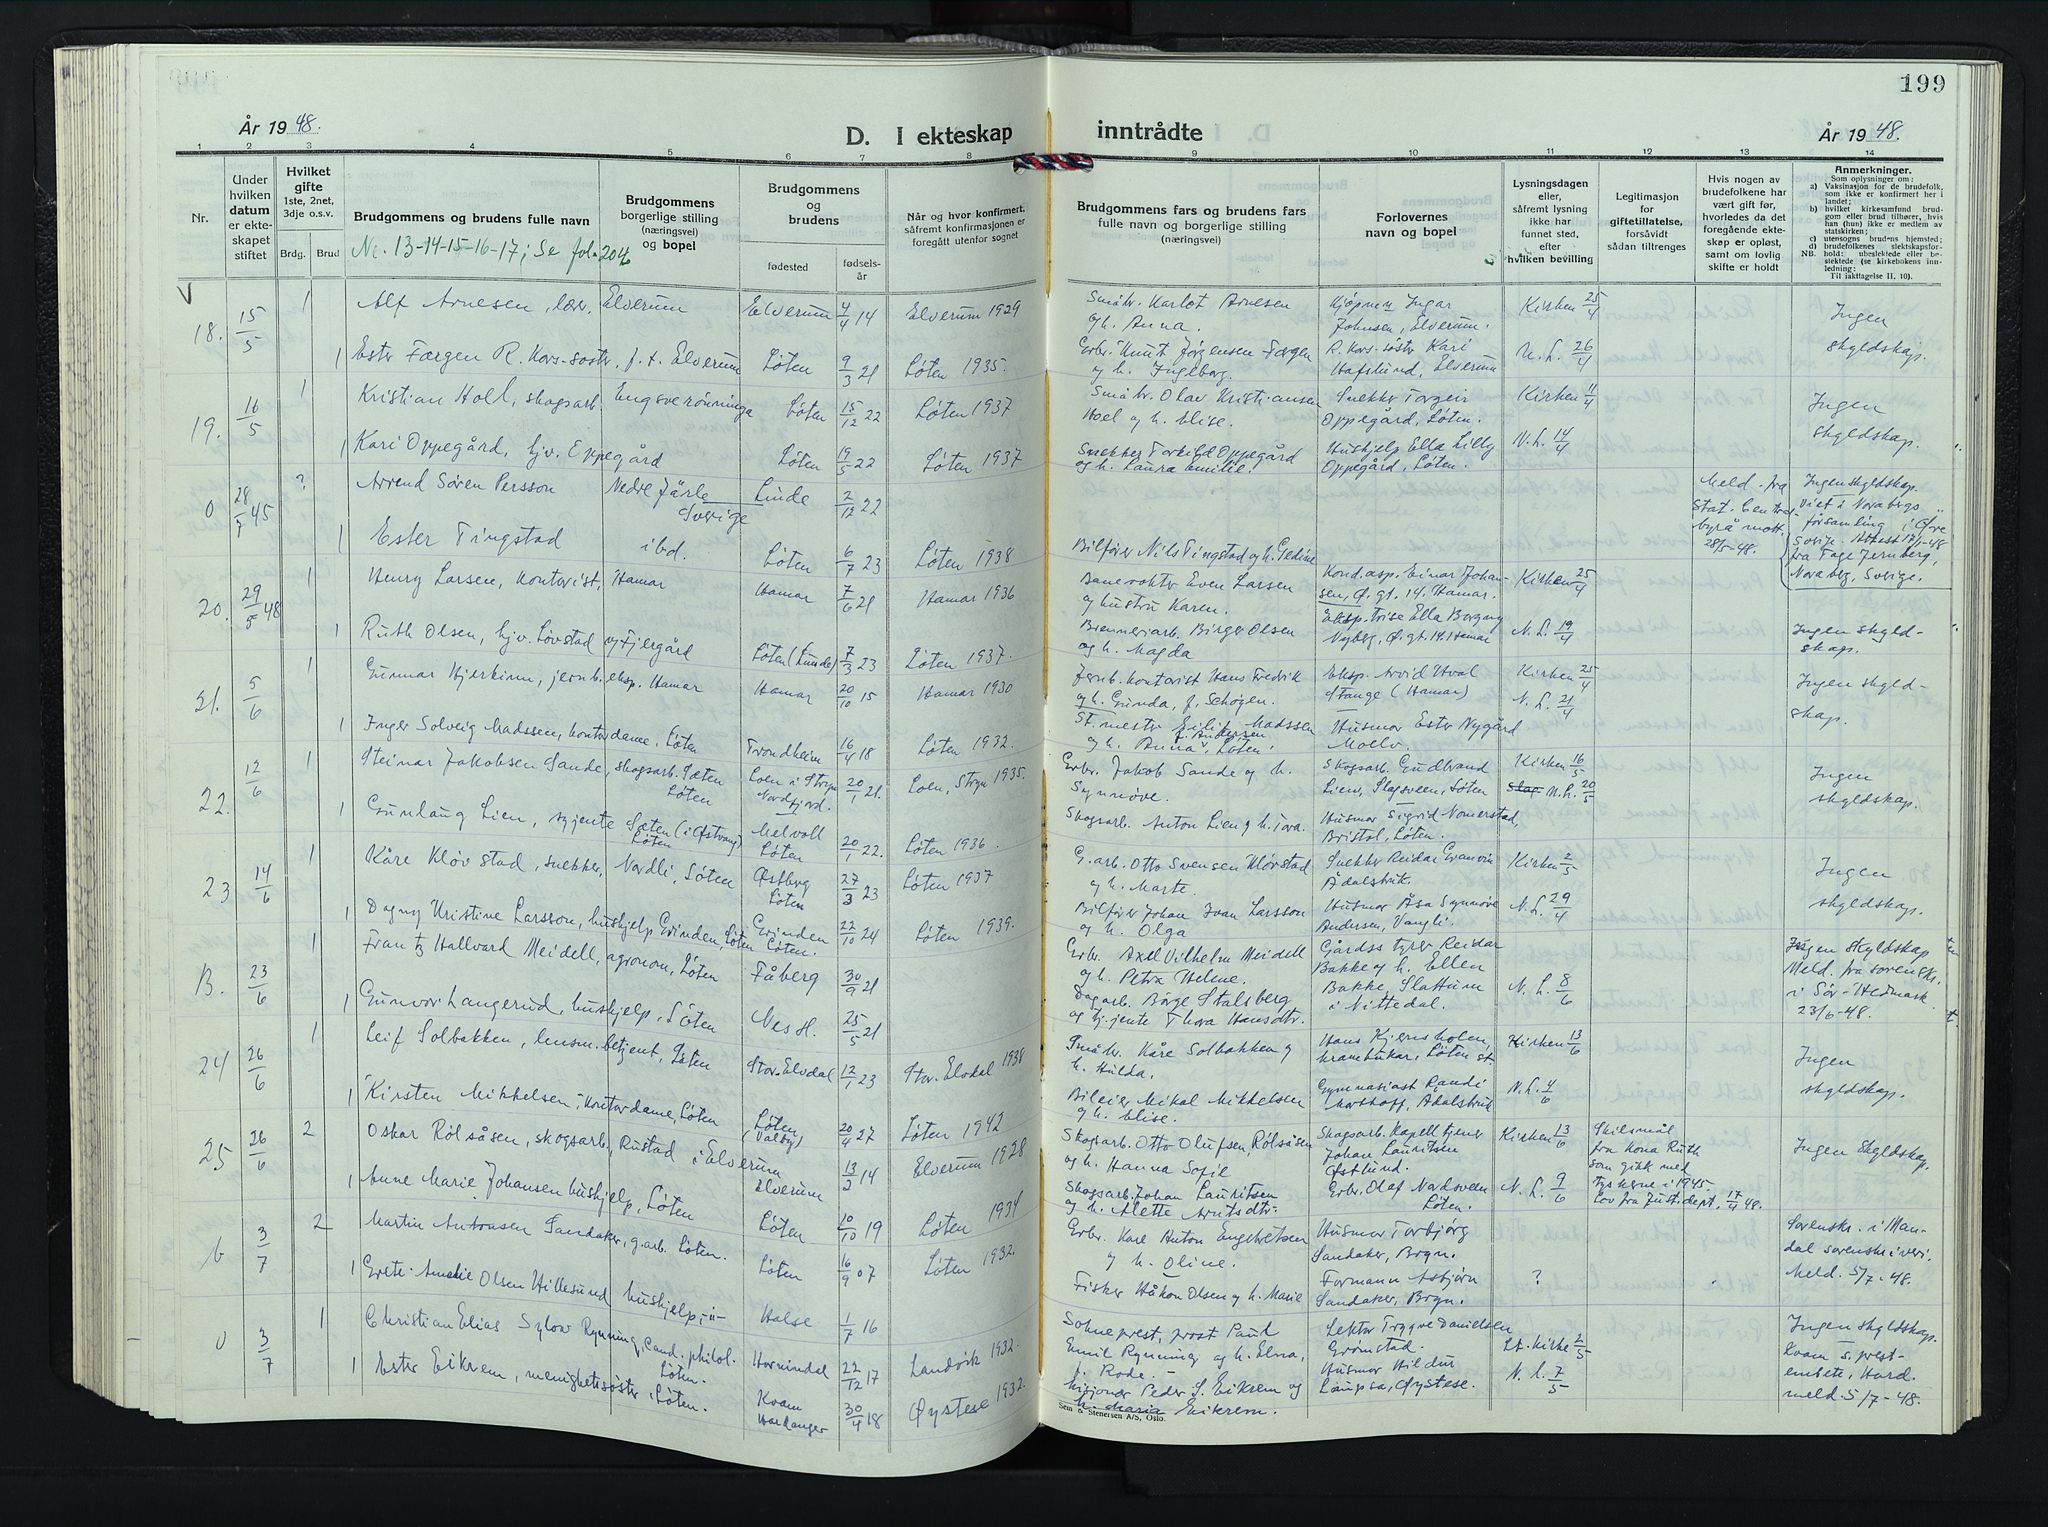 199
År 1948.
D. I ekteskap inntrådte
År 1948.
1 2 3 4 5 6 7 8 9 10 11 12 13 14
Nr.
Under hvilken datum er ekteskapet stiftet
Hvilket gifte 1ste, 2net, 3dje o.s.v.
Brdg. Brud
Brudgommens og brudens fulle navn
Nr. 13-14-15-16-17; Se fol. 204
Brudgommens borgerlige stilling (næringsvei) og bopel
Brudgommens og brudens
fødested
fødsels-år
Når og hvor konfirmert, såfremt konfirmasjonen er foregått utenfor sognet
Brudgommens fars og brudens fars fulle navn og borgerlige stilling (næringsvei)
Forlovernes navn og bopel
Lysningsdagen eller, såfremt lysning ikke har funnet sted, efter hvilken bevilling
Legitimasjon for giftetillatelse, forsåvidt sådan tiltrenges
Hvis nogen av brudefolkene har vært gift før, hvorledes da det foregående ekteskap er opløst, samt om lovlig skifte er holdt
Anmerkninger.
Som oplysninger om:
a) Vaksinasjon for de brudefolk, som ikke er konfirmert her i landet;
b) hvilket kirkesamfund brudgom eller brud tilhører, hvis han (hun) ikke er medlem av statskirken;
c) utensogns brudens hjemsted;
d) brudefolkenes slektskapsforhold: ubeslektede eller beslektede (se kirkebokens innledning:
NB. Til iakttagelse II, 10).
18. 15/5 1 Alf Arnesen, lær. Elverum Elverum 4/4 14 Elverum 1929 Småbr. Karlot Arnesen og h. Anna. Kjøpmn Ingar Johnsen, Elverum. Kirken 25/4 Ingen skyldskap.
1 Ester Færgen R. Kors-søstr. f. t. Elverum Løten 9/3 21 Løten 1935. Gbr. Knut Jørgensen Færgen og h. Ingeborg. R. Kors-søstr Kari Hafslund, Elverum N. L. 26/4
19. 16/5 1 Kristian Hoel, skogsarb. Engsverønninga Løten 15/12 22 Løten 1937 Småbr. Olav Kristiansen Hoel og h. Elise. Snekker Torgeir Oppegård, Løten. Kirken 11/4 Ingen skyldskap.
1 Kari Oppegård, hjv. Oppegård Løten 19/5 22 Løten 1937 Snekker Torkild Oppegård og h. Laura Emilie. Hushjelp Ella Lilly Oppegård, Løten. N. L. 14/4
0 28/7 45 ? Arvend Sören Persson Nedre Järle Sverige Linde 2/12 22 Meld. fra Stat. Sentralbyrå mott. 28/5-48. Ingen skyldskap. Viet i Norabergs församling i Øre Sverige. Attest 17/1-48 fra Tage Jernberg, Noraberg, Sverige.
1 Ester Tingstad ibd. Løten 6/7 23 Løten 1938 Bilfører Nils Tingstad og h. Gedine
20. 29/5 48 1 Henry Larsen, kontorist, Hamar Hamar 7/6 21 Hamar 1936 Banevokter Even Larsen og hustru Karen. Kond.asp. Einar Johansen, Ø. gt. 14. Hamar. Kirken 25/4 Ingen skyldskap.
1 Ruth Olsen, hjv. Løvstad v/ Fjergård Løten (Lunde) 7/3 23 Løten 1937. Brenneriarb. Birger Olsen og h. Magda Eksp.trise Ella Borgny Nyberg, Ø. gt. 14. Hamar N. L. 19/4
21. 5/6 1 Gunnar Hjerkinn, jernb. eksp. Hamar Hamar 20/10 15 Hamar 1930 Jernb. kontorist Hans Fredrik og h. Gunda, f. Schøyen. Eksp. Arvid Hval Stange (Hamar) Kirken 25/4 N. L. 21/4 Ingen skyldskap.
1 Inger Solveig Madssen, kontordame, Løten Trondheim 16/4 18 Løten 1932. St.mester Eilif Madssen og h. Anna f. Andersen, Løten. Husmor Ester Nygård Moelv.
22. 12/6 1 Steinar Jakobsen Sande, skogsarb. Sæten Løten Loen i Stryn Nordfjord. 20/1 21. Loen, Stryn 1935. Gbr. Jakob Sande og h. Synnøve. Skogsarb. Gudbrand Lien, Slagsveen, Løten Kirken 16/5 N. L. 20/5 Ingen skyldskap.
1 Gunlaug Lien, syjente Sæten (i Østvang) Løten Melvoll Løten 20/1 22. Løten 1936. Skogsarb. Anton Lien og h. Tora. Husmor Sigrid Nomerstad, Bristol, Løten.
23 14/6 1 Kåre Kløvstad, snekker, Nordli, Løten Østberg Løten 27/3 23 Løten 1937 G.arb. Otto Svensen Kløvstad og h. Marte. Snekker Reidar Granvin Ådalsbruk. Kirken 2/5 Ingen skyldskap.
1 Dagny Kristine Larsson, hushjelp Grinden, Løten Grinden Løten. 22/10 24 Løten 1939. Bilfører Johan Ivan Larsson og h. Olga Husmor Åsa Synnøve Andersen, Vangli. N. L. 29/4
B. 23/6 1 Frantz Hallvard Meidell, agronom, Løten Fåberg 30/9 21 Gbr. Axel Vilhelm Meidell og h. Petra Helene. Gårdsstyrer Reidar Bakke og h. Ellen Bakke, Slattum i Nittedal. N. L. 8/6 Ingen skyldskap Meld. fra sorenskr. i Sør-Hedmark. 23/6-48.
1 Gunvor Langerud, hushjelp, Løten Nes H. 25/5 21 Dagarb. Børge Stalsberg og tj.jente Thora Hansdtr.
24 26/6 1 Leif Solbakken, lensm. betjent, Løten Stor-Elvdal 12/1 23 Stor-Elvdal 1938 Småbr. Kåre Solbakken og h. Hilda. Hans Kjernsholen, Løten st. Kirken 13/6 Ingen skyldskap.
1 Kirsten Mikkelsen, kontordame, Løten Løten (Valby) 20/4 27 Løten 1942 Bileier Mikal Mikkelsen og h. Elise. Gymnasiast Randi Ådalsbruk N. L. 4/6
25 26/6 2 Oskar Rolsåsen, skogsarb., Rustad i Elverum Elverum 13/2 14 Elverum 1928 Skogsarb. Otto Olufsen Rolsåsen og h. Hanna Sofie Skogsarb. Kapelltjener Johan Lauritsen Østlund. Kirken 13/6 Skilsmål fra kona Ruth som gikk med tyskerne i 1945 Lov fra Just.dept. 17/4 48. Ingen skyldskap.
1 Anne Marie Johansen hushjelp, Løten Løten 10/10 19 Løten 1934 Skogsarb. Johan Lauritsen og h. Alette Arntsdtr. Gbr. Olaf Nordsveen Løten. N. L. 9/6
b 3/7 2 Martin Antonsen Sandaker, g.arb. Løten. Løten 16/9 07 Løten 1932. Gbr. Karl Anton Engebretsen og h. Oline. Husmor Torbjørg Sandaker, Brgn. ? Sorenskr. i Mandal sorenskriveri. Meld. 5/7-48.
1 Grete Amalie Olsen Hillesund hushjelp, -"- Halse 1/7 16 Fisker Håkon Olsen og h. Marie Formann Asbjørn Sandaker, Brgn.
0 3/7 1 Christian Elias Sylow Rynning, Cand. philol. Løten. Hornindal 22/12 17 Landvik 1932. Sokneprest, prost Paul Emil Rynning og h. Elna, f. Rode. Lektor Trygve Danielsen Grimstad. Lt. Kirke 2/5 Ingen skyldskap. Kvam s. prestembete, Hard. meld. 5/7-48.
1 Ester Eikrem, menighetssøster, Løten. Kvam Hardanger 30/4 18 Øystese 1932. Misjonær Peder S. Eikrem og h. Maria Eikrem. Husmor Hildur Laupsa, Øystese. N. L. 7/5
Sem & Stenersen A/S, Oslo.